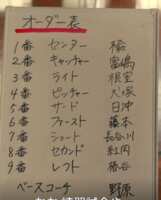 オーダー表
1番 センター 椿
2番 キャッチャー 富嶋
3番 ライト 根室
4番 ピッチャー 犬塚
5番 サード 日沖
6番 ファースト 藤本
7番 ショート 長谷川
8番 セカンド 紅内
9番 レフト 椿谷
ベースコーチ 野原